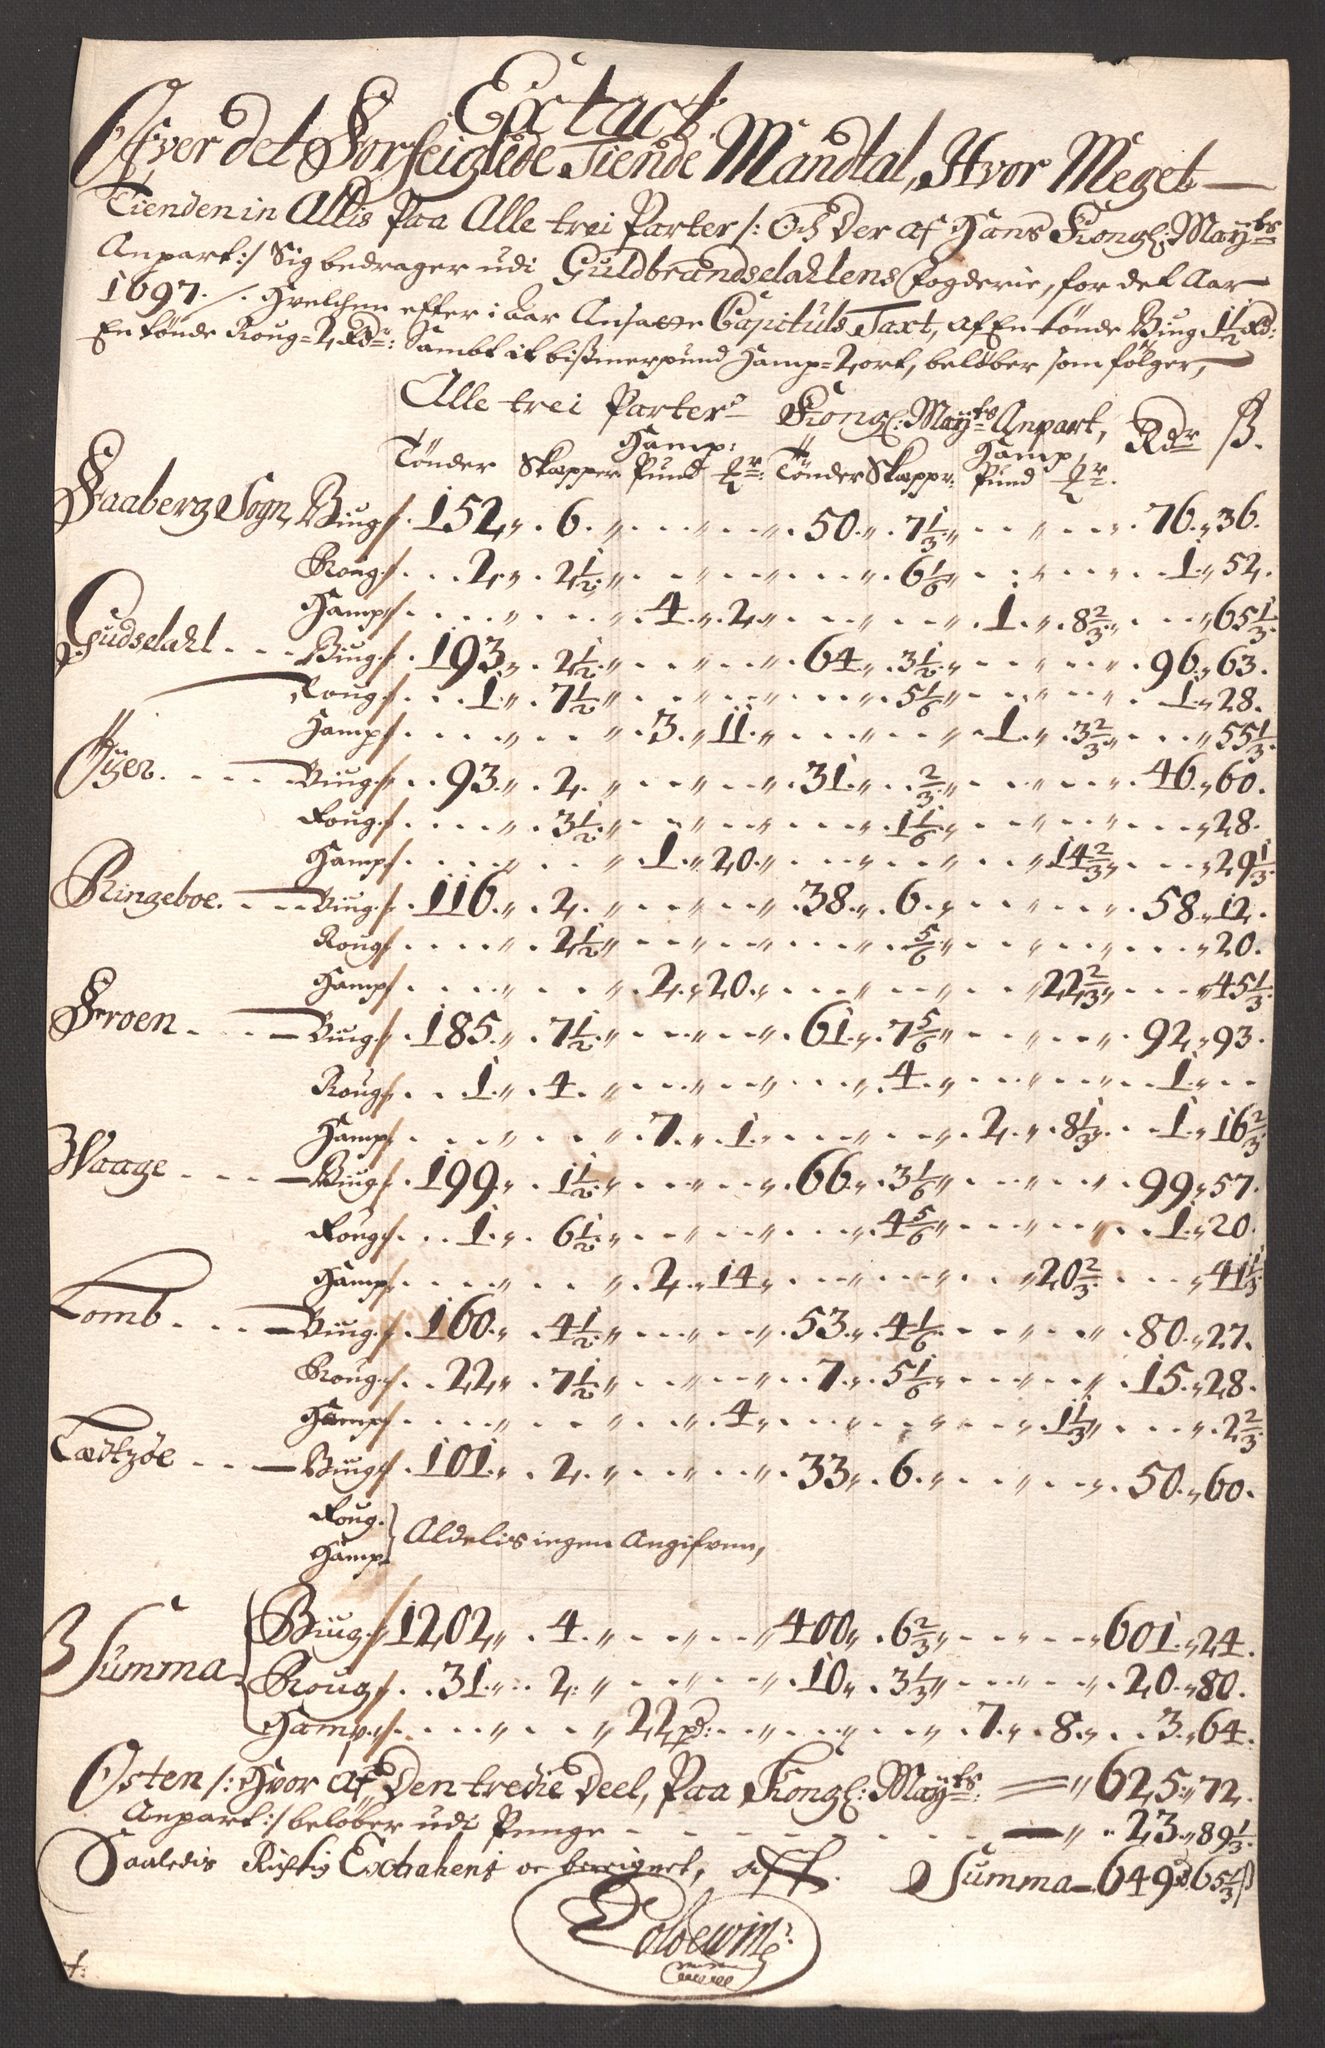 Extact.
Ofver det Forseiglede Tiende Mandtal, Hvor Meget
Tienden in Allis Paa Alle trei Parter /: Och Der af Hans Kongl: Mayts
Anpart :/ Sig bedrager udi Guldbrandsdahlens fogderie, for det Aar
1697. /. Hvelchen efter i aar Ansatte Capituls Taxt, af En tønde Biug 1½ Rd:
En tønde Roug = 2 Rdr: Sambt it bismerpund Hamp = 2 ort, beløber som følger,
Alle trei Parter Kongl: Mayts Anpart, Rdr ß.
Tønder Skæpper Hamp: Pund Qr: Tønder Skæppr: Hamp, Pund Qr.
Faaberg Sogn, Biug /. 152 " 6 . 50 " 7⅓ . 76 " 36.
Roug / . 2 " 2½ . 6⅙ . 1 " 52.
Hamp / . 4 " 2 . 1 " 8⅔ . 65⅓
Gudsdahl . . . Biug / . 193 " 2½ . 64 " 3½ . 96 " 63.
Roug / . 1 " 7½ . 5⅙ . 1 " 28.
Hamp / . 3 " 11 . 1 " 3⅔ . 55⅓
Øyer . . . Biug / . 93 " 2 . 31 " ⅔ . 46 " 60.
Roug / . 3½ . 1⅙ . 28.
Hamp / . 1 " 20 . 14⅔ . 29⅓
Ringeboe . . . Biug / . 116 " 2 . 38 " 6 . 58 " 12.
Roug / . 2½ . ⅚ . 20.
Hamp / . 2 " 20 . 22⅔ . 45⅓
Froen . . . Biug / . 185 " 7½ . 61 " 7⅚ . 92 " 93.
Roug / . 1 " 4 . 4 . 1 "
Hamp / . 7 " 1 . 2 " 8⅓ . 1 " 16⅔
Waage . . . Biug / . 199 " 1½ . 66 " 3⅙ . 99 " 57.
Roug / . 1 " 6½ . 4⅚ . 1 " 20.
Hamp / . 2 " 14 . 20⅔ . 41⅓
Lomb . . . Biug / . 160 " 4½ . 53 " 4⅙ . 80 " 27.
Roug / . 22 " 7½ . 7 " 5⅙ . 15 " 28.
Hamp / . 4 . 1⅓ . 2⅔
Læedtzøe . . . Biug / . 101 " 2 . 33 " 6 . 50 " 60.
Roug.
Hamp } Aldelis ingen Angifven,
Summa { Biug / 1202 " 4 . 400 " 6⅔ . 601 " 24.
Roug / . 31 " 2 . 10 " 3⅓ . 20 " 80.
Hamp / . 22 pd: . 7 " 8 . 3 " 64.
Osten /: Hvor af Den tredie Deel, Paa Kongl: Mayts: " 625 " 72.
Anpart :/ beløber udi Penge . . . 23 " 89⅓.
Saaledis Rigtig Extrahert oc beregnet, Summa 649 65⅓ ß